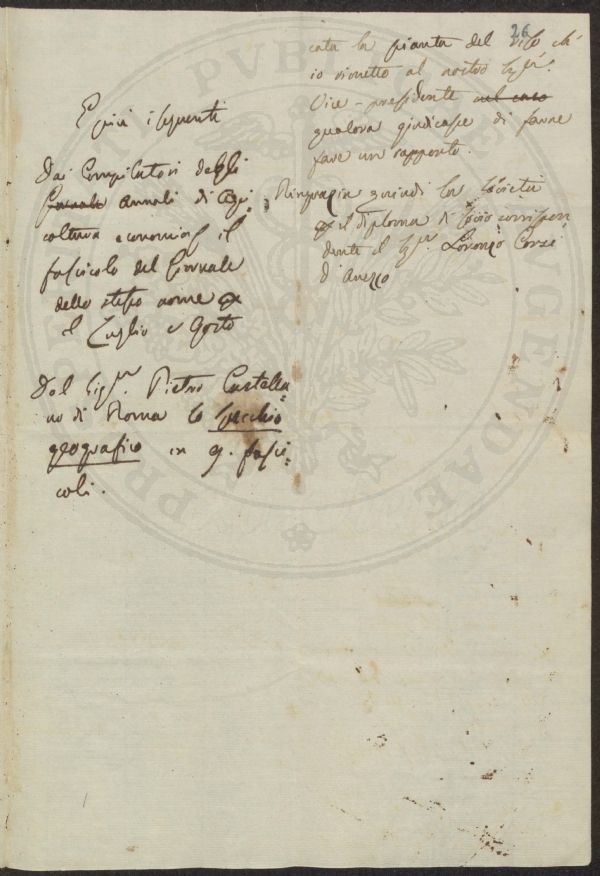 26
E più i seguenti
Dai Compilatori degli
Giornale Annali di Agri=
coltura economica il
fascicolo del Giornale
dello stesso nome per
il Luglio e Agosto
Dal Sigr. Pietro Castella=
no di Roma lo Specchio
geografico in 9. fasci=
coli.
cata la pianta del riso ch'
io rimetto al nostro Sigr.
Vice-presidente nel caso
qualora giudicasse di farne
fare un rapporto.
Ringrazia quindi la Società
per il diploma di Socio corrispon
dente il Sigr. Lorenzo Corsi
d'Arezzo